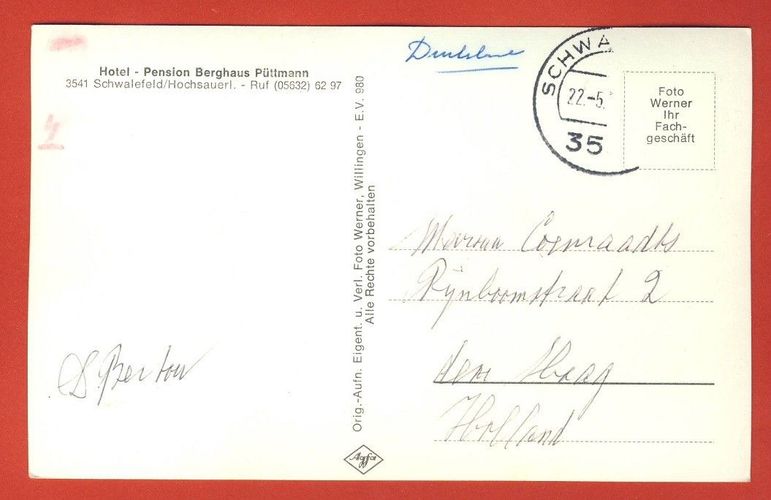 Hotel - Pension Berghaus Püttmann
3541 Schwalefeld/Hochsauerl. - Ruf (05632) 62 97
Orig.-Aufn. Eigent. u. Verl. Foto Werner, Willingen - E.V. 980
Alle Rechte vorbehalten
SCHWA
22.-5.
35
Foto
Werner
Ihr
Fach-
geschäft
Coenraadts
Rijnboomstraat 2
den Haag
Holland
Agfa